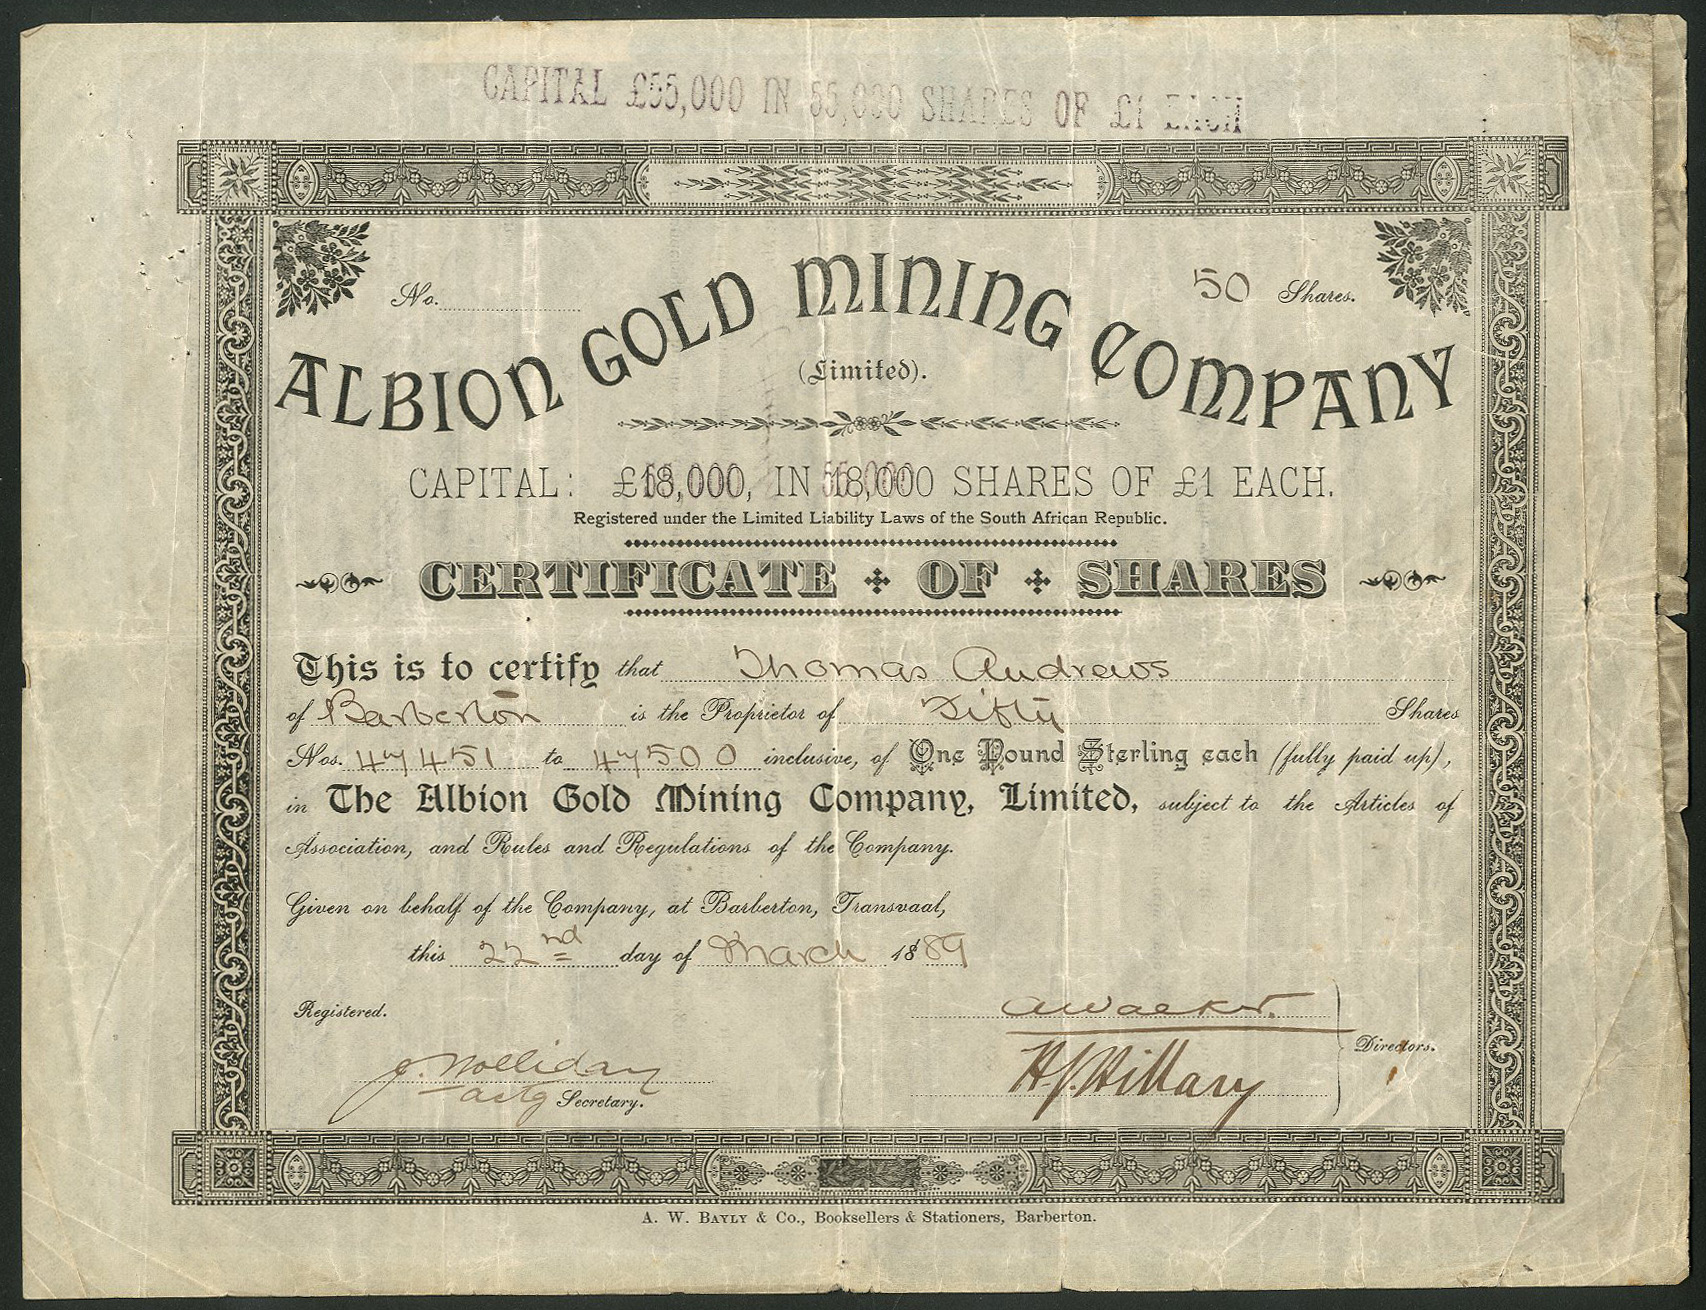 CAPITAL £55,000 IN 55,000 SHARES OF £1 EACH
No. 50 Shares.
ALBION GOLD MINING COMPANY
(Limited).
CAPITAL: £18,000, IN 18,000 SHARES OF £1 EACH.
Registered under the Limited Liability Laws of the South African Republic.
CERTIFICATE OF SHARES
This is to certify that Thomas Andrews
of Barberton is the Proprietor of Fifty Shares
Nos. 47451 to 47500 inclusive, of One Pound Sterling each (fully paid up),
in The Albion Gold Mining Company, Limited, subject to the Articles of
Association, and Rules and Regulations of the Company.
Given on behalf of the Company, at Barberton, Transvaal,
this 22nd day of March 1889
Registered.
A Walker.
Directors.
J. Holliday
H. J. Hillary
actg Secretary.
A. W. BAYLY & Co., Booksellers & Stationers, Barberton.